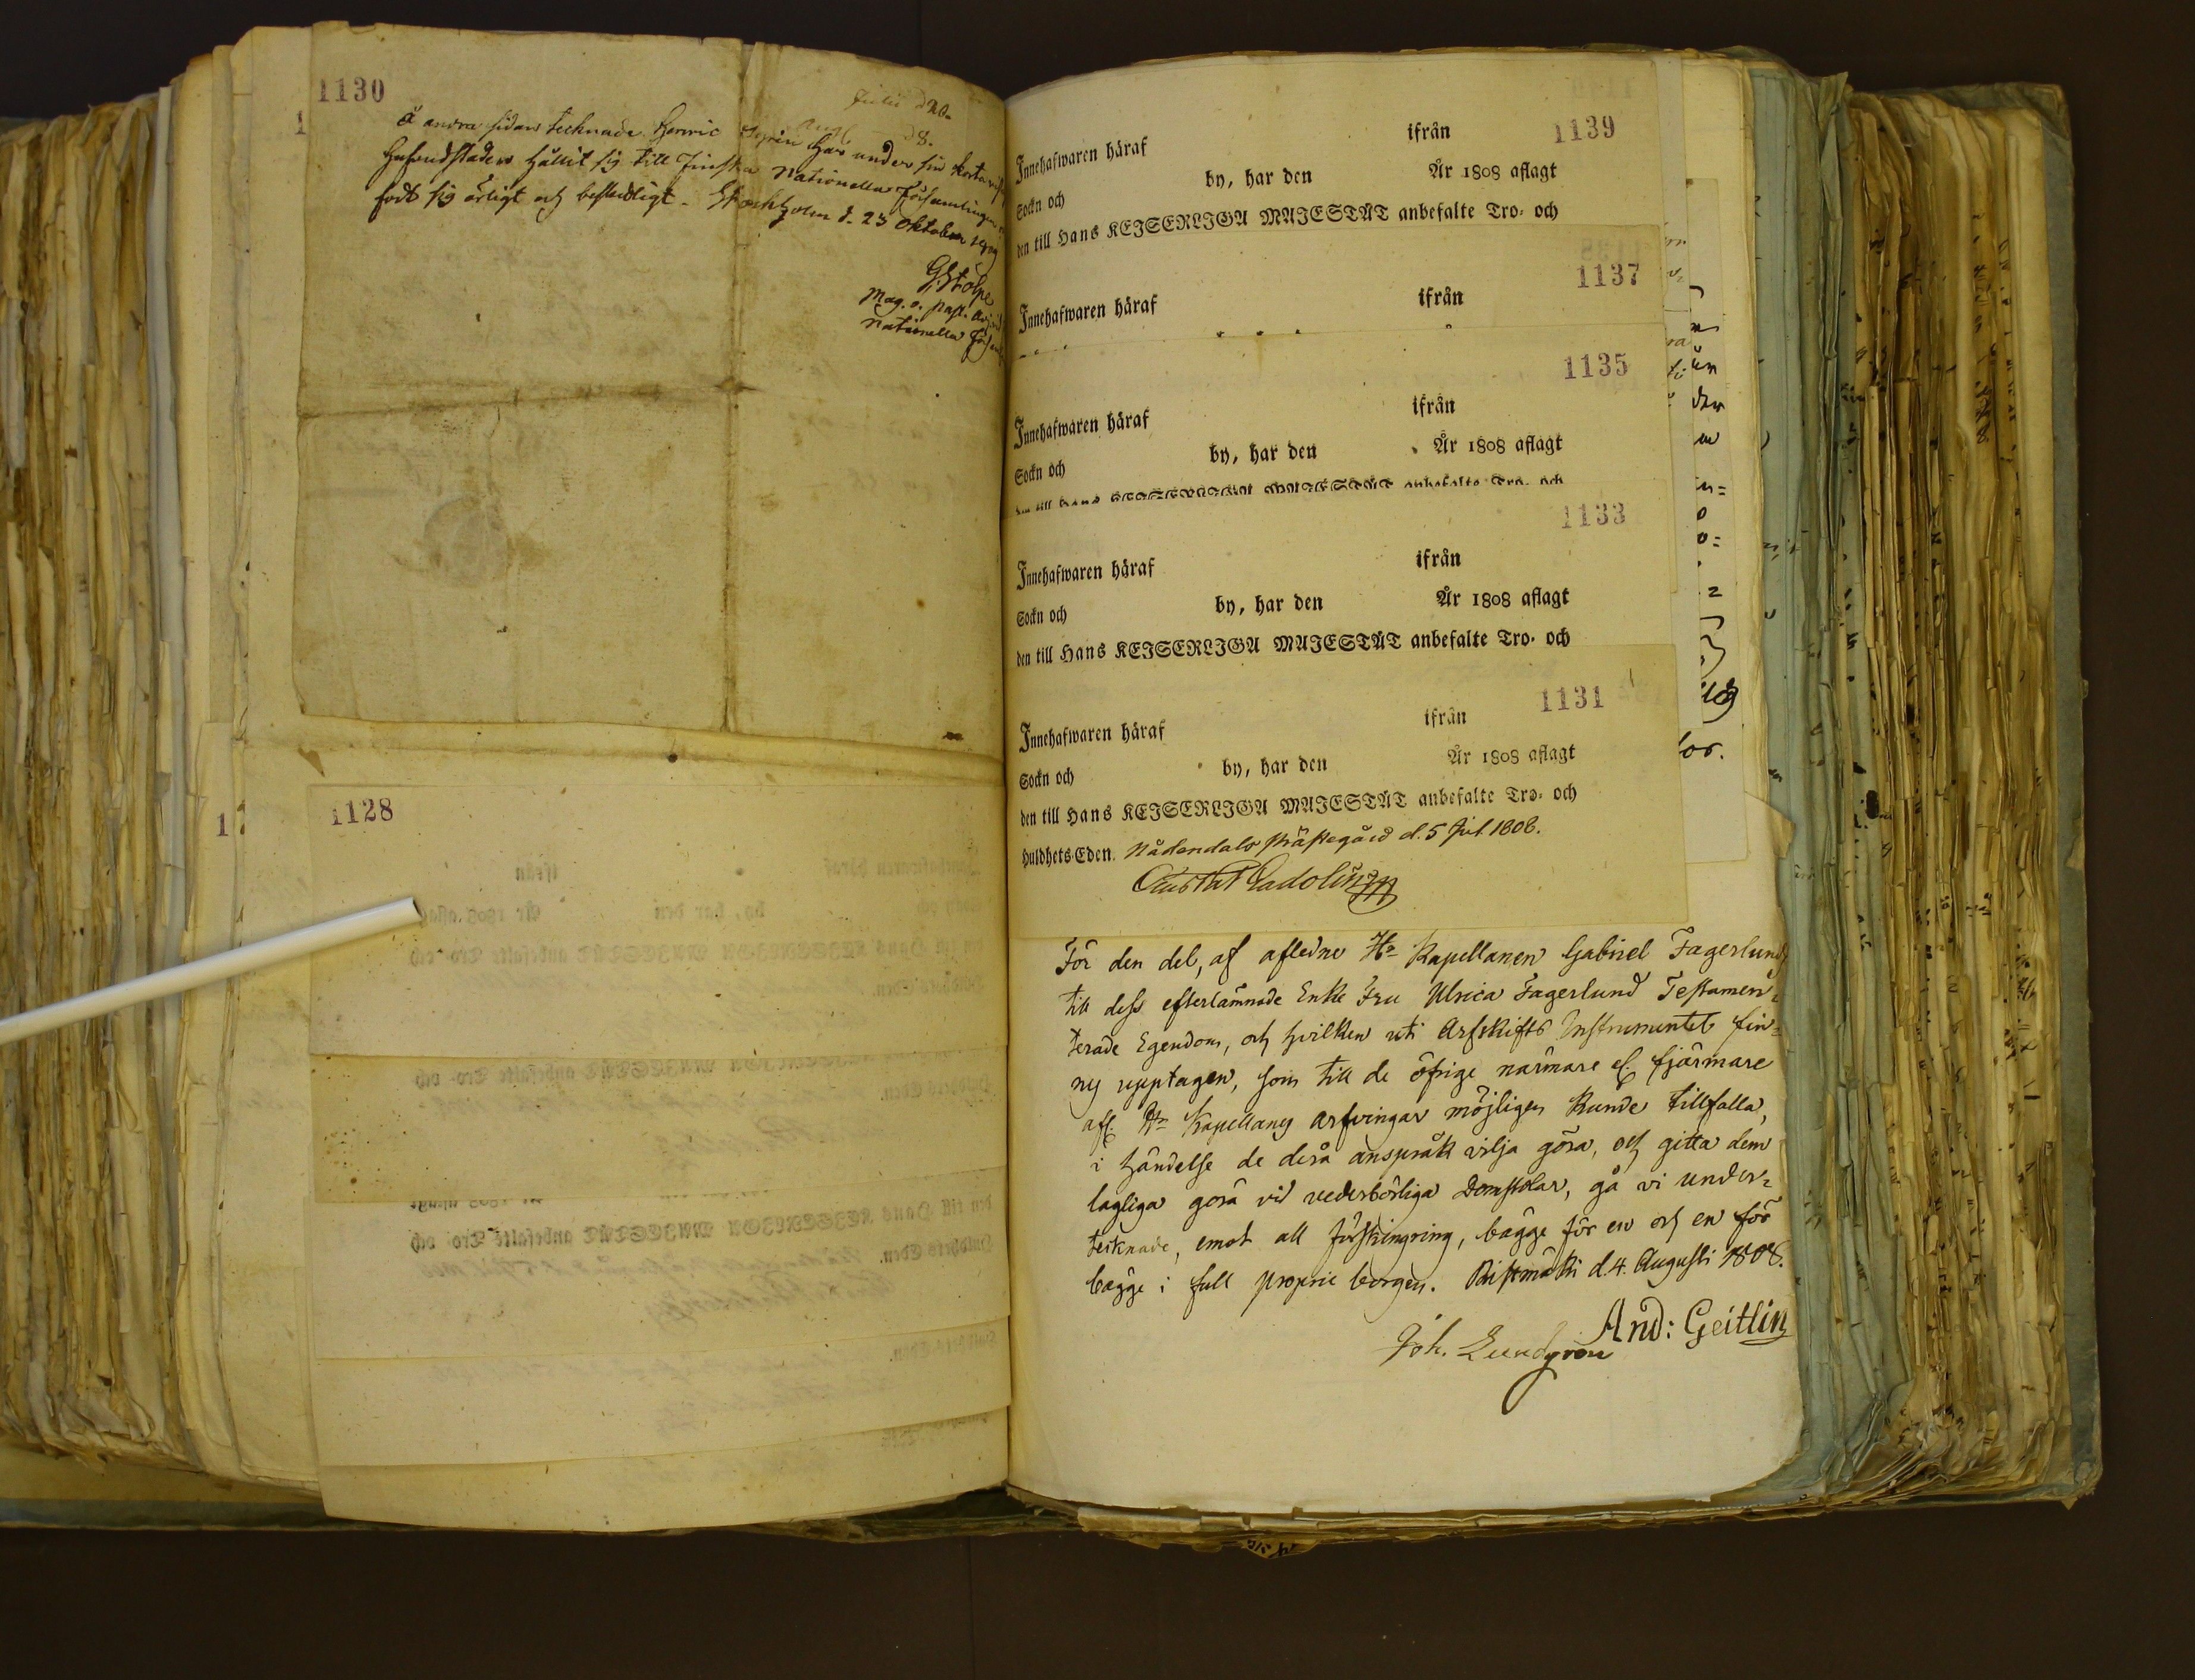 1130
Julii d 20.
Aug. d 8.
Å andra sidan tecknade Henric har under sin korta
hufvudstaden hållit sig till Finska Nationella Församlingen
fört sig ärligt och beskedligt. Stockholm d. 23 Oktober
G. Stolpe
Mag. o. Past. Adj.
Nationella
1128
1139
Innehafwaren häraf ifrån
Sockn och by, har den År 1808 aflagt
den till Hans KEJSERLIGA MAJESTÄT anbefalte Tro- och
1137
Innehafwaren häraf ifrån
1135
Innehafwaren häraf ifrån
Sockn och by, har den År 1808 aflagt
den till Hans KEJSERLIGA MAJESTÄT anbefalte Tro- och
1133
Innehafwaren häraf ifrån
Sockn och by, har den År 1808 aflagt
den till Hans KEJSERLIGA MAJESTÄT anbefalte Tro- och
1131
Innehafwaren häraf ifrån
Sockn och by, har den År 1808 aflagt
den till Hans KEJSERLIGA MAJESTÄT anbefalte Tro- och
Huldhets-Eden. Nådendals Prästegård d. 5 Jul. 1808.
Gustaf Gadolin
För den del, af aflidne Hr Kapellanen Gabriel Fagerlund
till dess efterlämnade Enka Fru Ulrica Fagerlund Testamen-
terade Egendom, och hvilken uti Arfskifts Instrumentet fin-
ns upptagen, som till de öfrige närmare el. fjärmare
afl. Hr Kapellans arfvingar möjligen kunde tillfalla,
i händelse de derå anspråk vilja göra, och gitta dem
lagliga göra vid vederbörliga Domstolar, gå vi under-
tecknade, emot all förskingring, bägge för en och en för
bägge i full proprie borgen. Ristmäki d. 4. Augusti 1808.
And: Geitlin
Joh. Lundgren